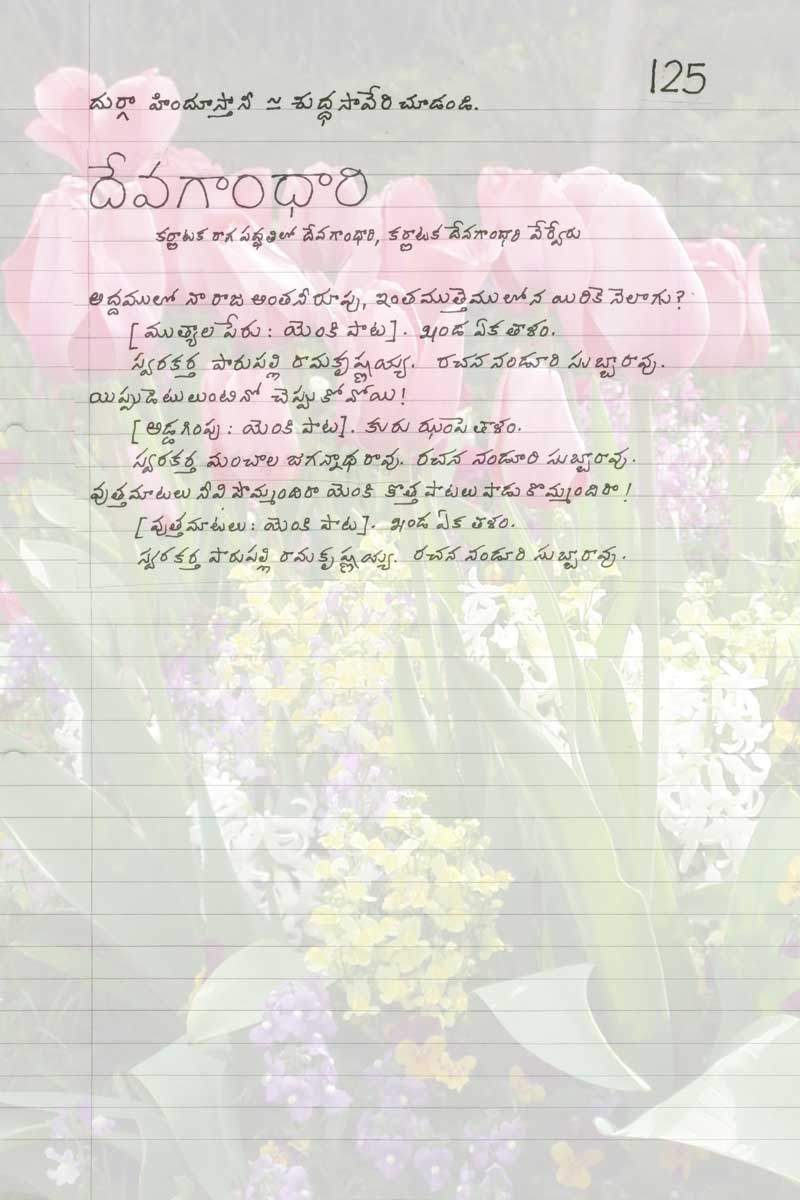 125
దుర్గా హిందూస్తానీ ≃ శుద్ధసావేరి చూడండి.
దేవగాంధారి
కర్ణాటక రాగ పద్ధతిలో దేవగాంధారి, కర్ణాటక దేవగాంధారి వేర్వేరు
అద్దములో నా రాజు అంతనీ రూపు, ఇంతముత్తెములోన యిరికె నెలాగు?
[ముత్యాల పేరు: యెంకి పాట]. ఖండ ఏక తాళం.
స్వరకర్త పారుపల్లి రామకృష్ణయ్య. రచన నండూరి సుబ్బారావు.
యిప్పుడెటులుంటినో చెప్పుకోనోయి!
[అడ్డగింపు: యెంకి పాట]. కురు ఝంపె తాళం.
స్వరకర్త మంచాల జగన్నాథరావు. రచన నండూరి సుబ్బారావు.
వుత్తమాటలు నీవి పొమ్మందిరా యెంకి కొత్త పాటలు పాడుకొమ్మందిరా!
[వుత్తమాటలు: యెంకి పాట]. ఖండ ఏక తాళం.
స్వరకర్త పారుపల్లి రామకృష్ణయ్య. రచన నండూరి సుబ్బారావు.